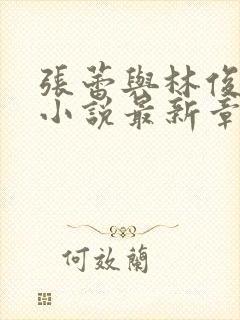 張蕾與林俊
小說最新章
何效蘭